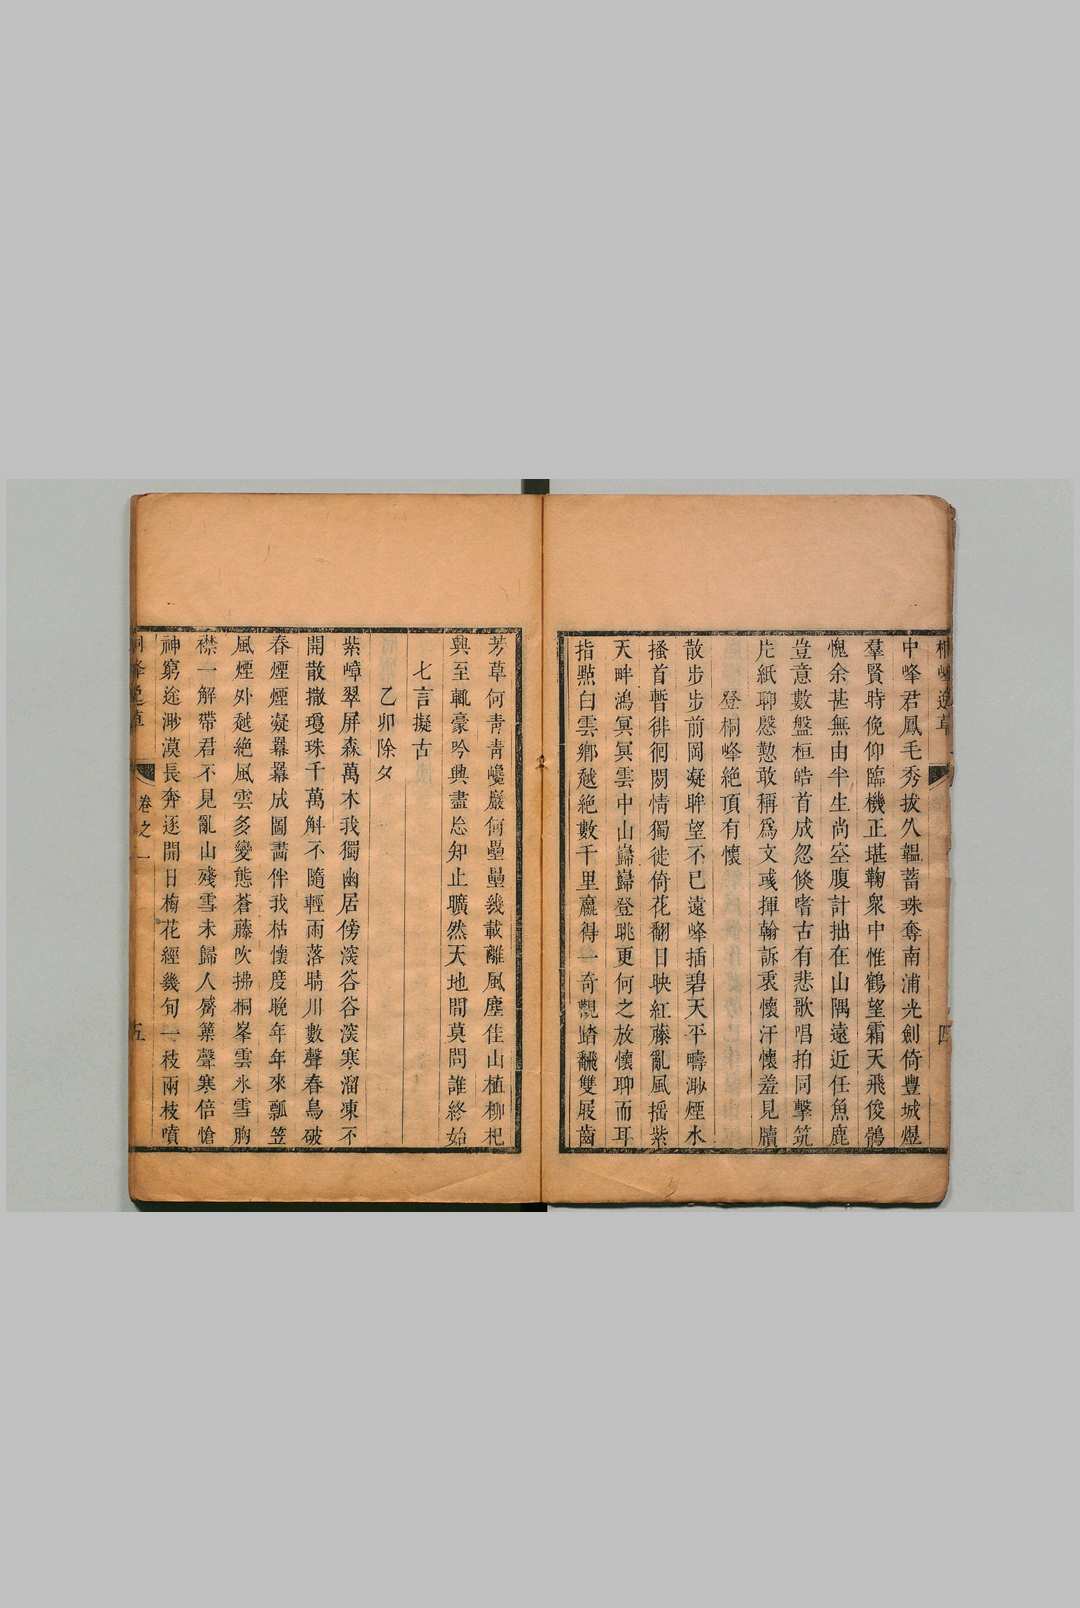 桐峰逸草
四
中峰君鳳毛秀拔久韞蓄珠奪南浦光劍倚豐城煜
羣賢時俛仰臨機正堪鞠衆中惟鶴望霜天飛俊鶻
愧余甚無由半生尚空腹計拙在山隅遠近任魚鹿
豈意數盤桓皓首成忽倏嗜古有悲歌唱拍同擊筑
片紙聊慇懃敢稱爲文彧揮翰訴衷懷汗懷羞見牘
登桐峰絶頂有懷
散步步前岡凝眸望不已遠峰插碧天平疇渺煙水
搔首暫徘徊閑情獨徙倚花翻日映紅藤亂風揺紫
天畔鴻冥冥雲中山巋巋登眺更何之放懷聊而耳
指點白雲鄉越絶數千里贏得一奇觀踏飜雙屐齒
芳草何靑靑巉巖何壘壘幾載離風塵佳山植柳杞
興至輒豪吟興盡怣知止曠然天地間莫問誰終始
七言擬古
乙卯除夕
紫嶂翠屏森萬木我獨幽居傍溪谷谷溪寒溜凍不
開散撒瓊珠千萬斛不隨輕雨落晴川數聲春鳥破
春煙煙凝羃羃成圖畵伴我枯懷度晚年年來瓢笠
風煙外越絶風雲多變態蒼藤吹拂桐峯雲氷雪胸
襟一解帶君不見亂山殘雪未歸人觱篥聲寒倍愴
神窮途渺漠長奔逐開日梅花經幾旬一枝兩枝噴
桐峰逸草
卷之一
五